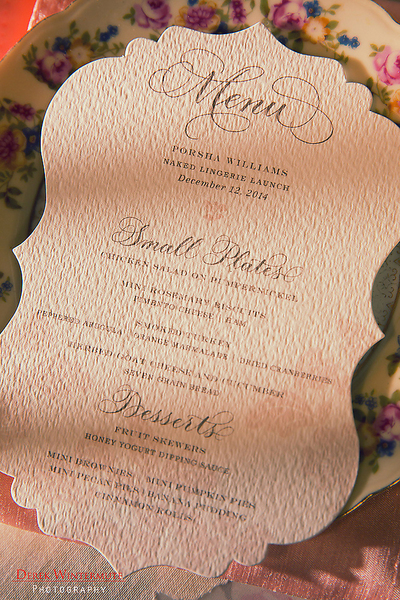 Menu
PORSHA WILLIAMS
NAKED LINGERIE LAUNCH
December 12, 2014
Small Plates
CHICKEN SALAD ON PUMPERNICKEL
MINI ROSEMARY BISCUITS
PIMENTO CHEESE | HAM
SMOKED TURKEY
PEPPERED ARUGULA | ORANGE MARMALADE | DRIED CRANBERRIES
HERBED GOAT CHEESE AND CUCUMBER
SEVEN GRAIN BREAD
Desserts
FRUIT SKEWERS
HONEY YOGURT DIPPING SAUCE
MINI BROWNIES | MINI PUMPKIN PIES
MINI PECAN PIES | BANANA PUDDING
CINNAMON ROLLS
DEREK WINTERMUTE
PHOTOGRAPHY